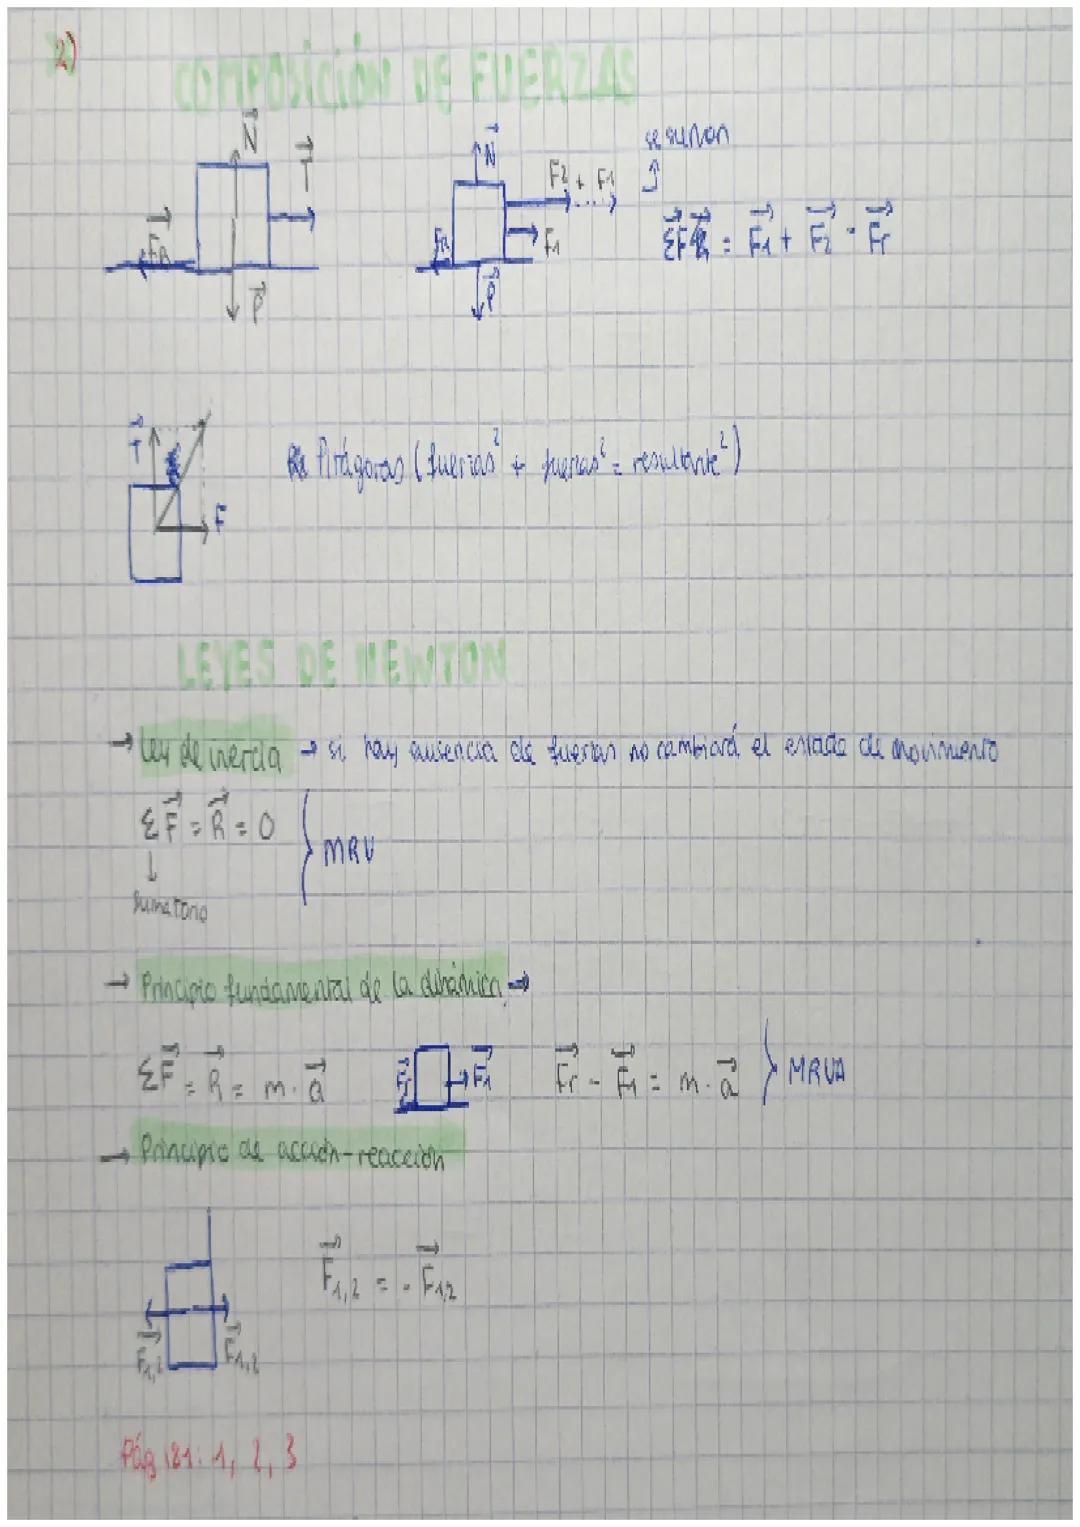 2)
COMPOSICIÓN DE FUERZAS
N T FR P
N F2 + F1 F1 FR P
se suman
ΣFR = F1 + F2 - Fr
T F
Pitágoras (fuerzas² + fuerzas² = resultante²)
LEYES DE NEWTON
→ Ley de inercia → si hay ausencia de fuerzas no cambiará el estado de movimiento
ΣF = R = 0 } MRU
↓
Sumatorio
→ Principio fundamental de la dinámica →
ΣF = R = m · a Fr F1 Fr - F1 = m · a } MRUA
→ Principio de acción-reacción
F1,2 = - F1,2
F1,2 F1,2
Pág 181: 1, 2, 3